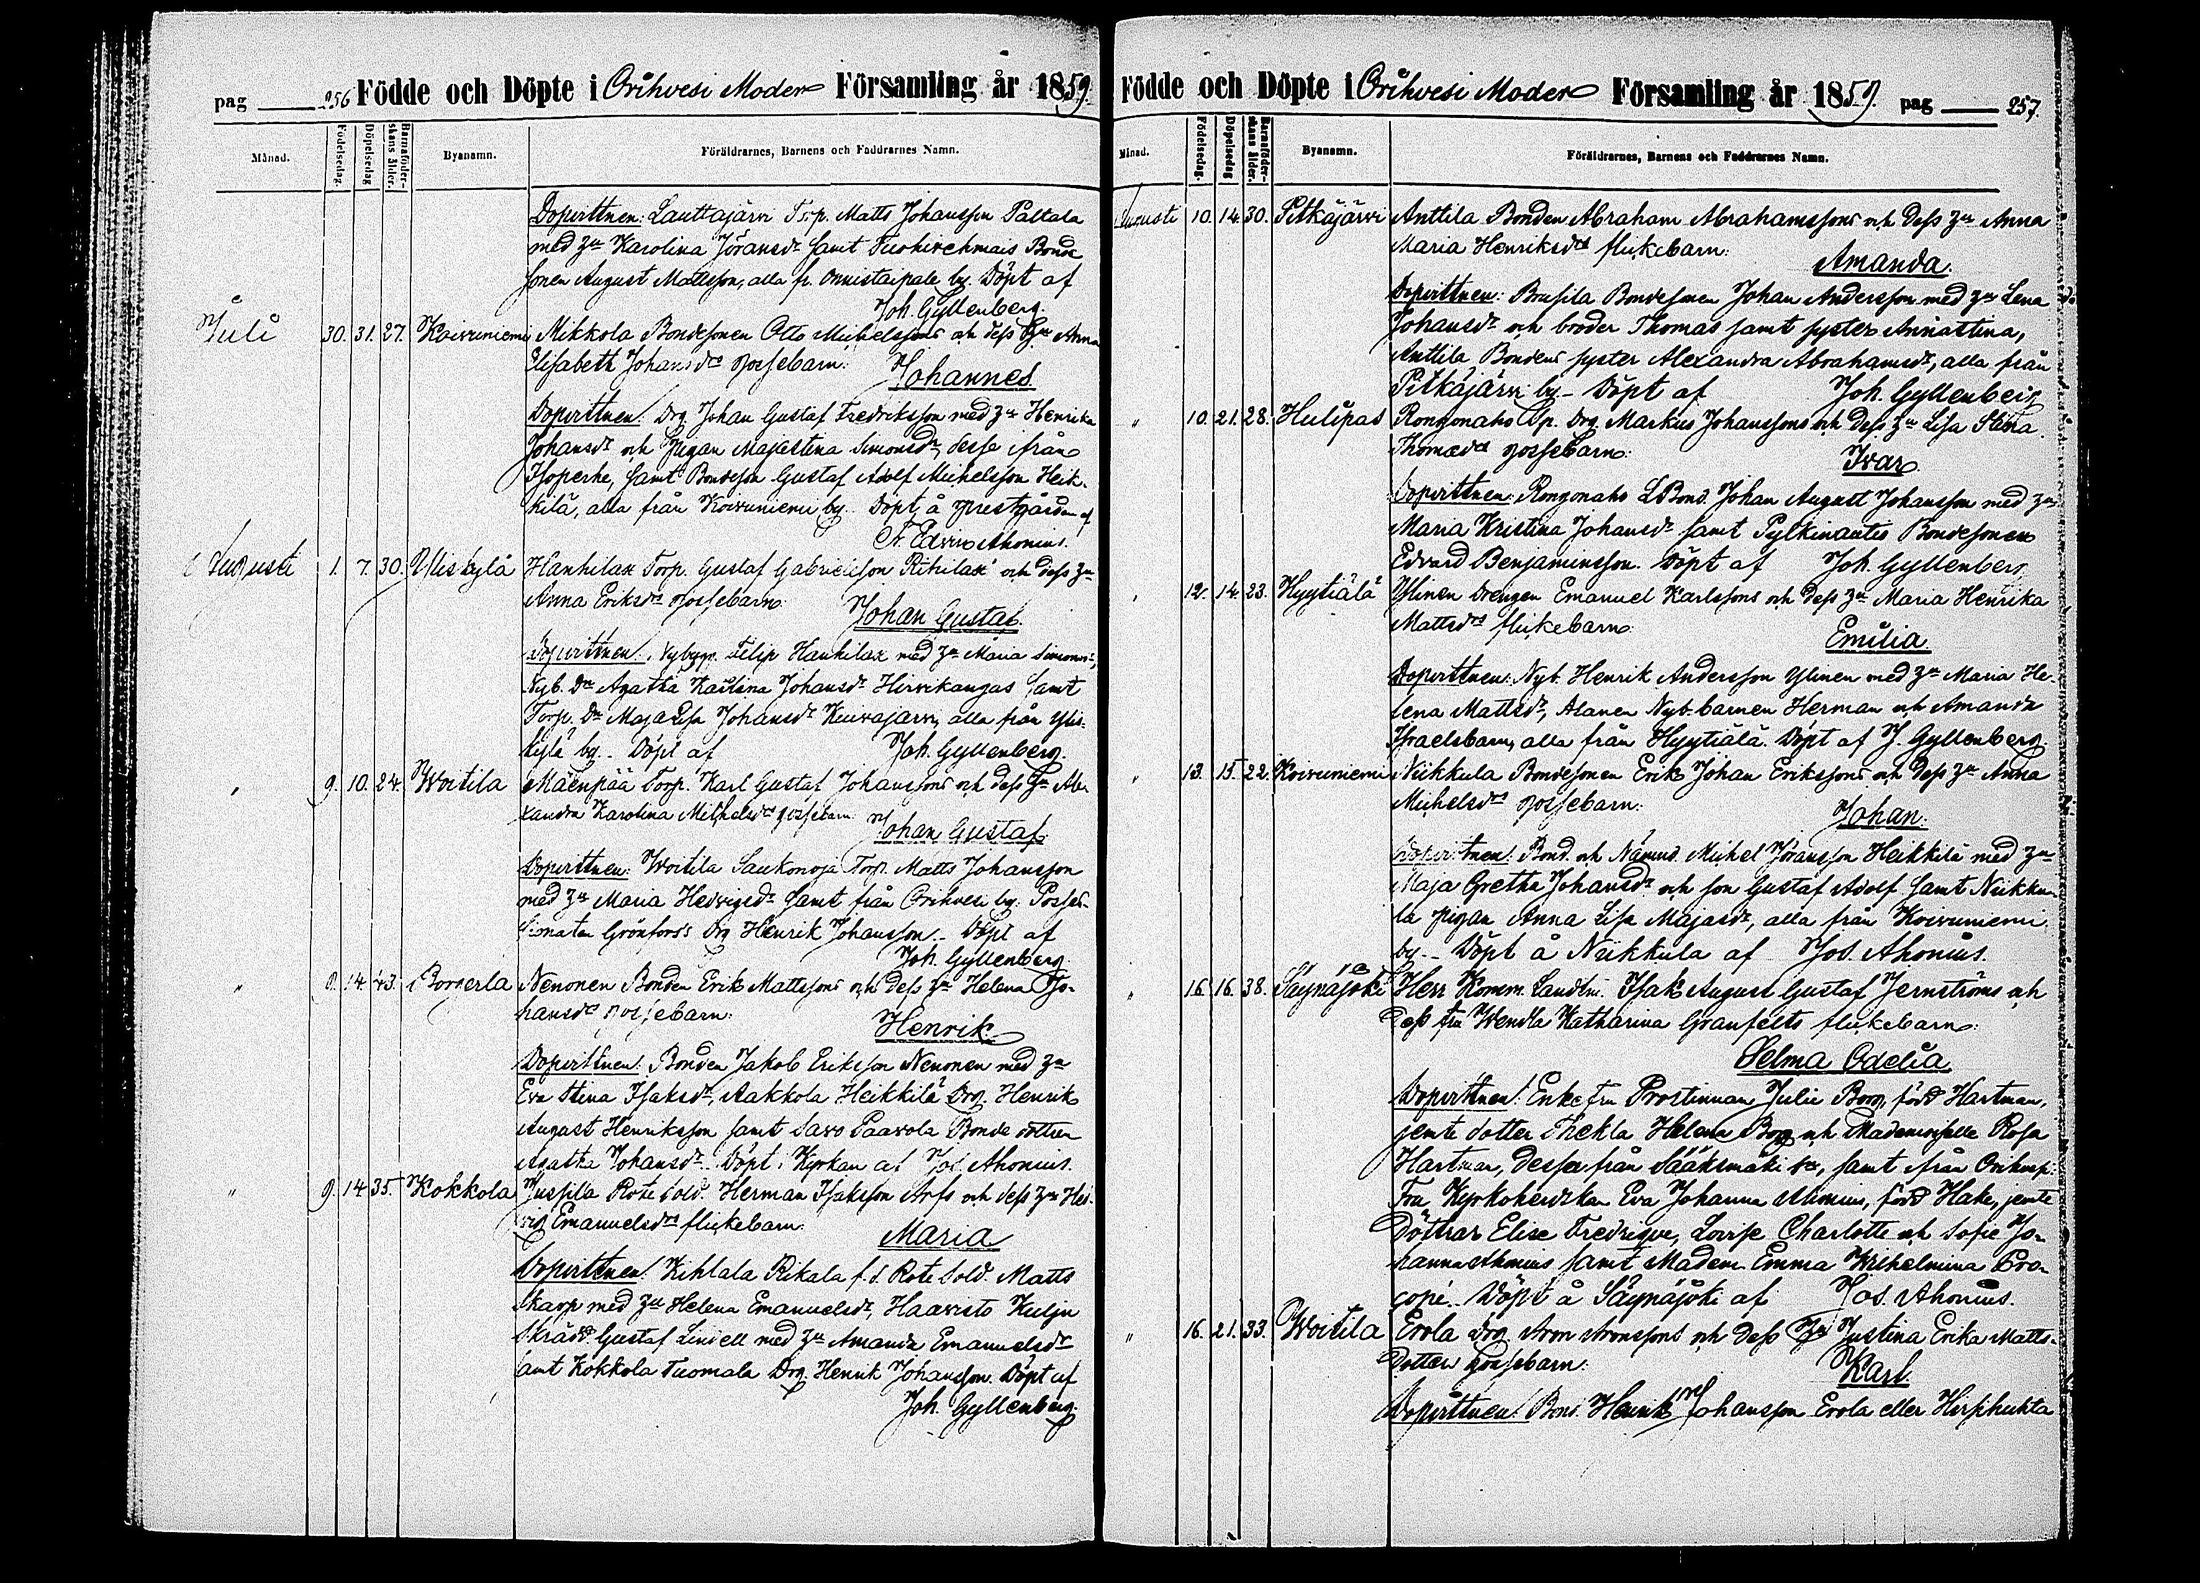 pag 256 Födde och Döpte i Orihvesi Moder Församling år 1859.
Månad. Födelsedag. Döpelsedag Barnaföderskans ålder. Byanamn. Föräldrarnes, Barnens och Faddrarnes Namn.
Dopvittnen: Lauttajärvi Torp. Matts Johansson Paltala
med hu Karolina Jöransdr samt Bonde
sonen August Mattsson, alla fr. Onnistaipale by. Döpt af
Joh. Gyllenberg.
Juli 30. 31. 27. Koivuniemi Mikkola Bondesonen Otto Michelssons och dess hu Anna
Elisabeth Johansdrs gossebarn: Johannes
Dopvittnen: Drg Johan Gustaf Fredriksson med hu Henrika
Johansdr och Pigan Majastina Simonsdr, desse ifrån
Isoperhe, samt Bondeson Gustaf Adolf Michelsson Heik-
kilä, alla från Koivuniemi by. Döpt å prestgården af
Fr. Edvin Ahonius.
Augusti 1. 7. 30. Yliskylä Hankilax Torp. Gustaf Gabrielsson och dess hu
Anna Eriksdrs gossebarn: Johan Gustaf.
Dopvittnen: Nybygg. Filip Hankilax med hu Maria Simonsdr,
Nyb. Dr Agatha Kaisiina Johansdr Hirvikangas samt
Torp. Dr Maja Lisa Johansdr Kuivajärvi, alla från Ylis-
kylä by. Döpt af Joh. Gyllenberg.
" 9. 10. 24. Woitila Mäenpää Torp. Karl Gustaf Johanssons och dess hu Alex
xandra Karolina Michelsdrs gossebarn: Johan Gustaf.
Dopvittnen: Woitila Saukonoja Torp. Matts Johansson
med hu Maria Hedvigsdr samt från Orihvesi by. Posses-
sionaten Grönfors's Drg Henrik Johansson. Döpt af
Joh. Gyllenberg.
" 9. 14. 43. Bonden Erik Mattssons och dess hu Helena Jo-
hansdrs gossebarn: Henrik.
Dopvittnen: Bonden Jakob Eriksson Nenonen med hu
Eva Stina Isaksdr, Aakkola Heikkilä Drg. Henrik
August Henriksson samt Savo Paavola Bonde dottren
Agatha Johansdr. Döpt i Kyrkan af Jos. Ahonius.
" 9. 14. 35. Kokkola Jussila Rote Sold. Herman Isaksson Arfs och dess hu Hed-
vig Emanuelsdrs flickebarn: Maria
Dopvittnen: Kihlala Rikala f.d. Rote Sold. Matts
Skarp med hu Helena Emanuelsdr, Haavisto Kulju
Skrädd Gustaf Lindell med hu Amanda Emanuelsdr
samt Kokkola Tuomala Drg. Henrik Johansson. Döpt af
Joh. Gyllenberg.
Födde och Döpte i Orihvesi Moder Församling år 1859. pag 257.
Månad. Födelsedag. Döpelsedag Barnaföderskans ålder. Byanamn. Föräldrarnes, Barnens och Faddrarnes Namn.
Augusti 10. 14. 30. Pitkäjärvi Anttila Bonden Abraham Abrahamssons och dess hu Anna
Maria Henriksdrs flickebarn: Amanda.
Dopvittnen: Brusila Bondesonen Johan Andersson med hu Lena
Johansdr och broder Thomas samt syster Annastina,
Anttila Bondens syster Alexandra Abrahamsdr, alla från
Pitkäjärvi by. Döpt af Joh. Gyllenberg
" 10. 21. 28. Hulipas Rongonaho Sp. Drg. Markus Johanssons och dess hu Lisa Stina
Thomædrs gossebarn: Ivar.
Dopvittnen: Rongonaho L.Bond. Johan August Johansson med hu
Maria Kristina Johansdr samt Bondesonen
Edvard Benjaminsson. Döpt af Joh. Gyllenberg
" 12. 14. 23. Hyytiälä Ylinen drengen Emanuel Karlssons och dess hu Maria Henrika
Mattsdrs flickebarn: Emilia.
Dopvittnen: Nyb. Henrik Andersson Ylinen med hu Maria He-
lena Mattsdr, Alanen Nyb. barnen Herman och Amanda
Israelsbarn, alla från Hyytiälä. Döpt af J. Gyllenberg.
" 13. 15. 22. Koivuniemi Niikkula Bondesonen Erik Johan Erikssons och dess hu Anna
Michelsdrs gossebarn: Johan.
Dopvittnen: Bond. och Nämnd. Michel Jöransson Heikkilä med hu
Maja Gretha Johansdr och son Gustaf Adolf samt Niikku-
la pigan Anna Lisa Majasdr, alla från Koivuniemi
by. Döpt å Niikkula af Jos. Ahonius.
" 16. 16. 38. Säynäjoki Herr Komm. Landtm. Isak August Gustaf Jernströms och
dess fru Wendla Katharina Granfelts flickebarn:
Selma Odelia
Dopvittnen: Enke fru Prostinnan Julie Borg, född Hartman,
jemte dotter Thekla Helena Borg och Mademoiselle Rosa
Hartman, dessa från Sääksmäki sn, samt ifrån Orihvesi:
Fru Kyrkoherdskan Eva Johanna Ahonius, född Hake, jemte
Döttrar Elise Fredrique, Lovise Charlotte och Sofie Jo-
hanna Ahonius samt Madem. Emma Wilhelmina Pro-
copé. Döpt å Säynäjoki af Jos. Ahonius.
" 16. 21. 33. Woitila Erola Drg. Aron Aronssons och dess hu Justina Erika Matts-
dotters gossebarn: Karl.
Dopvittnen: Bond. Henrik Johansson Erola eller Hirsihuhta